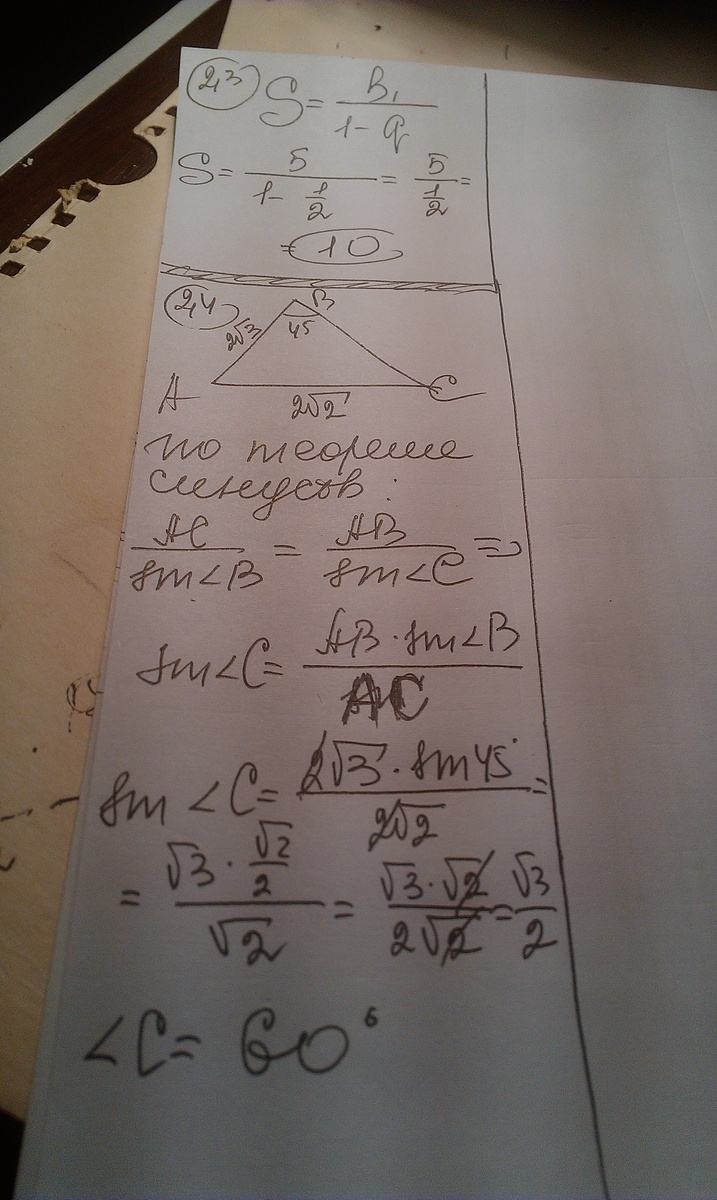 2,3 S = B₁ / (1 - q)
S = 5 / (1 - 1/2) = 5 / (1/2) =
= 10
2,4
B
2√3 45
A C
2√2
по теореме
синусов:
AC / sin∠B = AB / sin∠C =>
sin∠C = AB · sin∠B / AC
sin∠C = 2√3 · sin 45° / 2√2 =
= √3 · √2/2 / √2 = √3 · √2 / 2√2 = √3 / 2
∠C = 60°